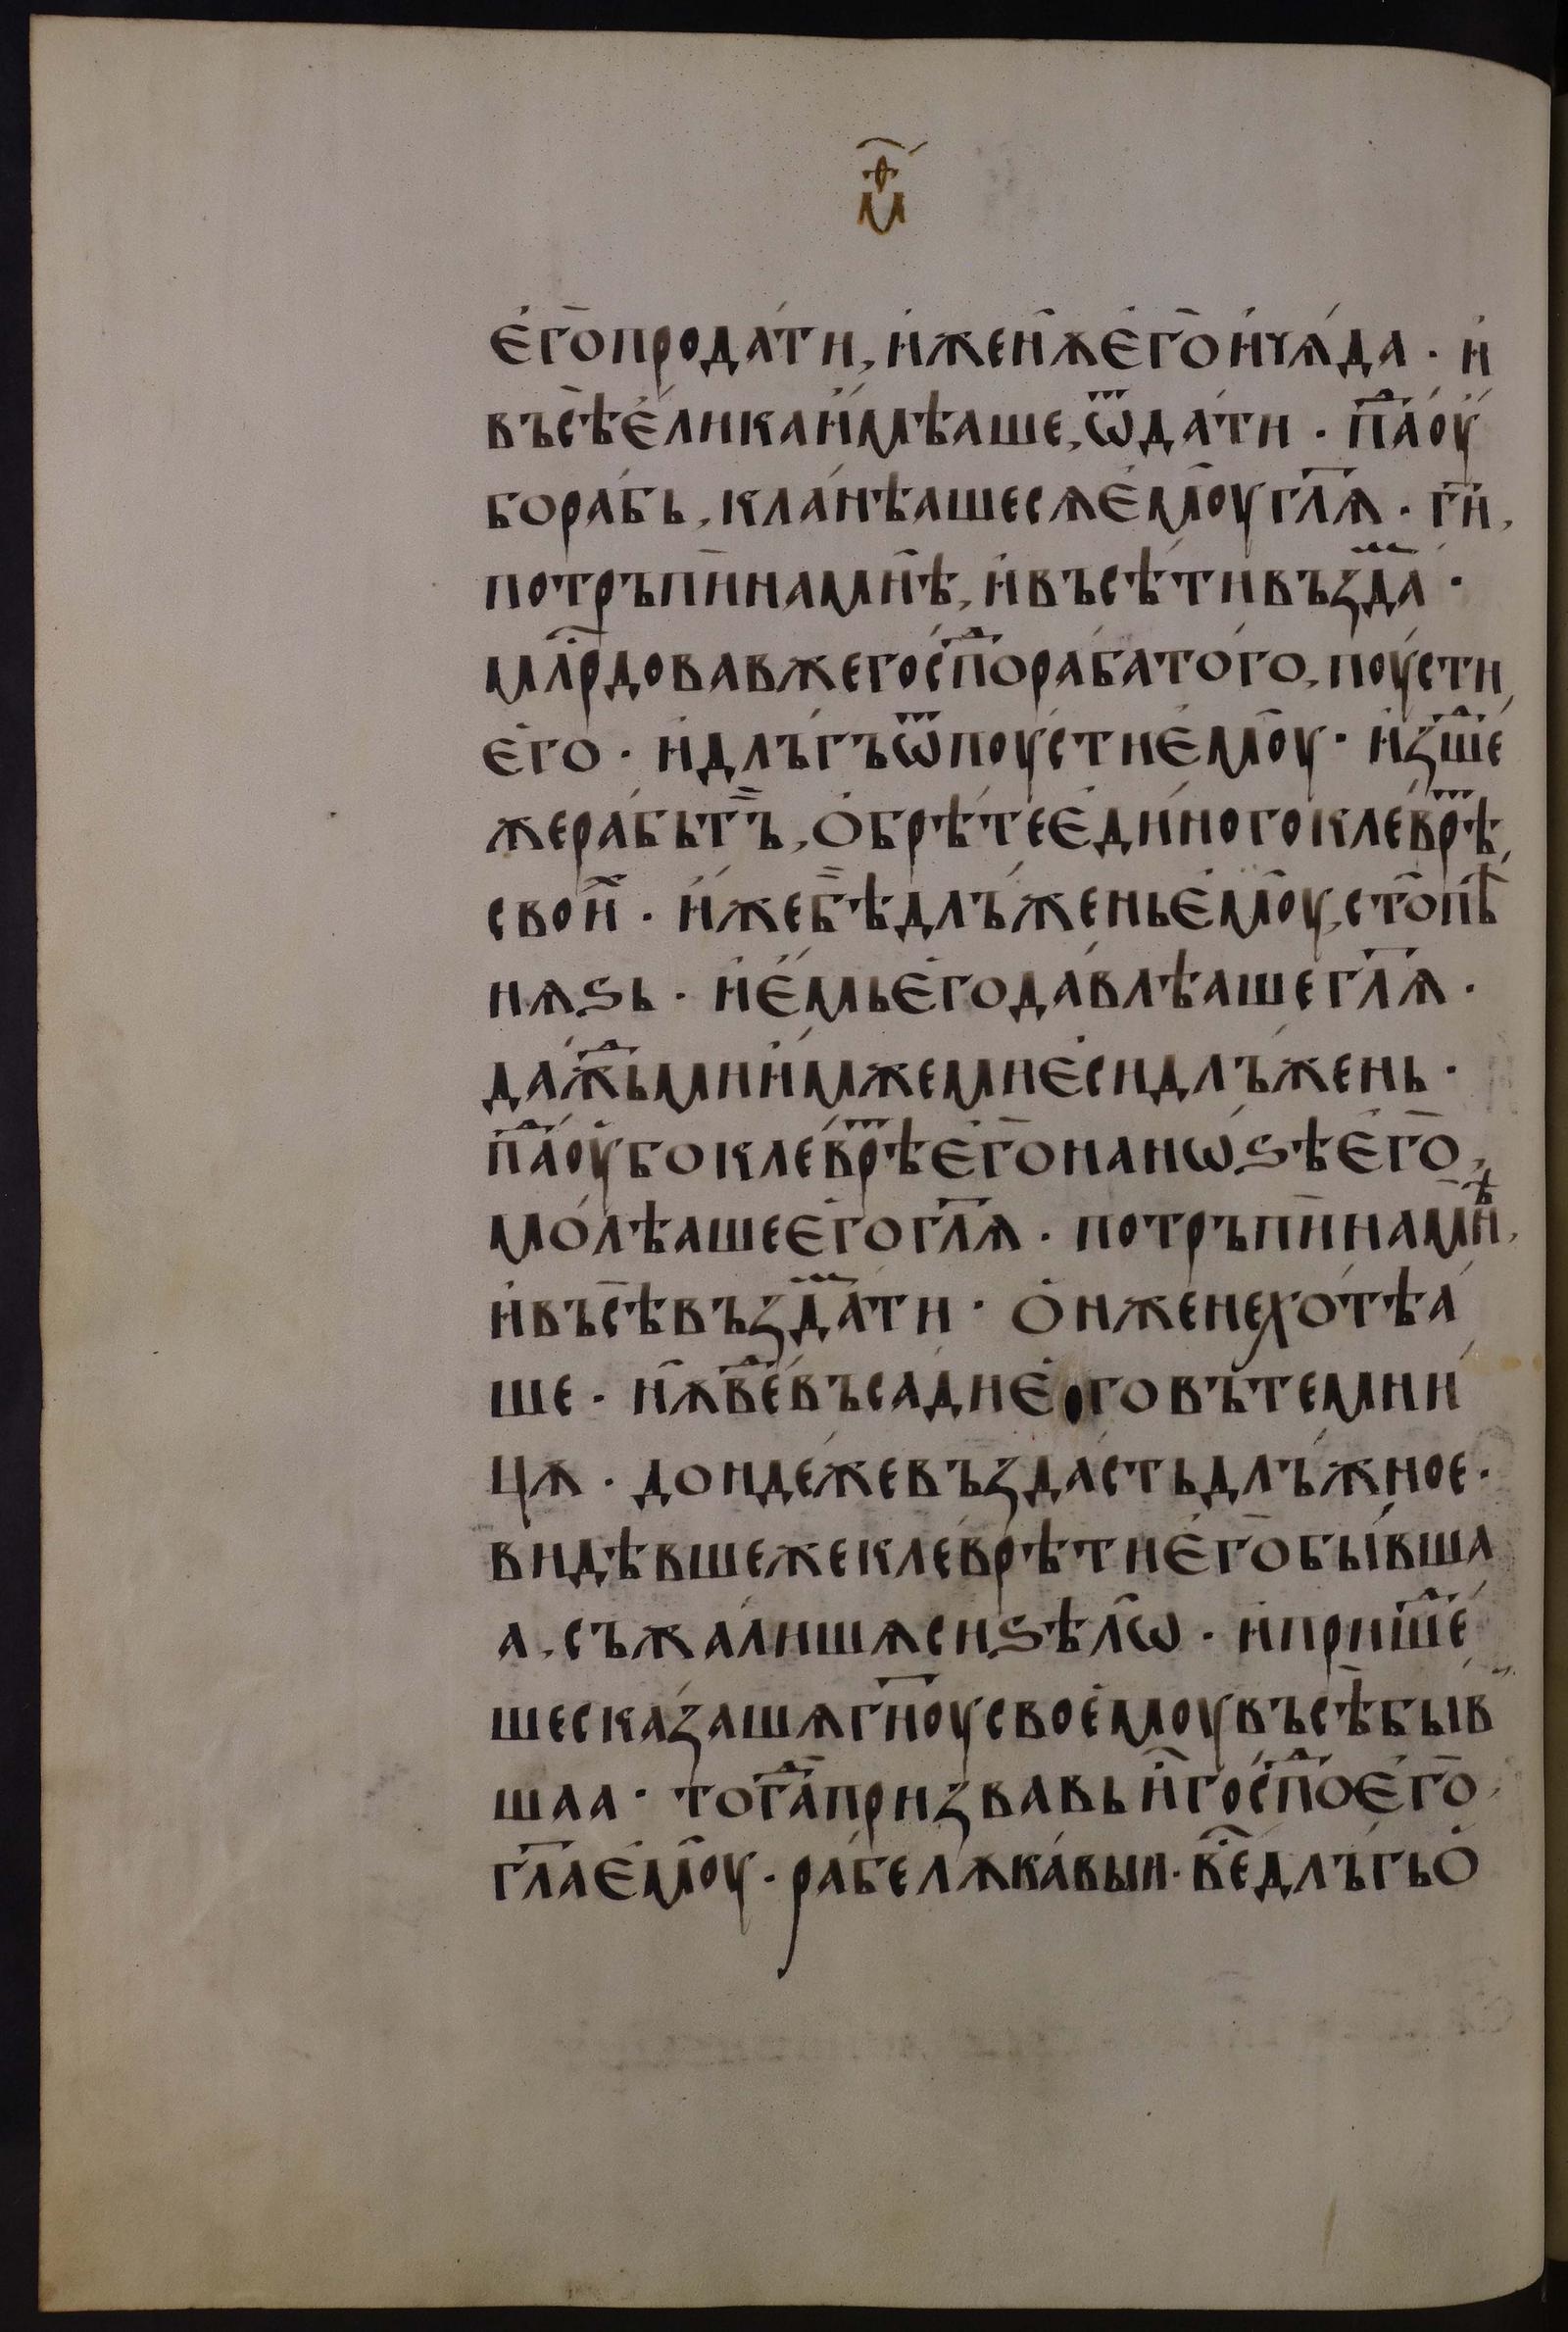 е҆го̀продати, и҆женѫ̀е҆го̀и҆чѧ́да · и҆
въсѣ̀е҆́ликаи҆мѣаше, ѿда́ти · па́ⷣоу҆
бора́бь, кла́нѣашесѧе҆моу̀гл҃ѧ · ги҃,
потръпѝнамнѣ̀, и҆въсѣ́тивъзда́ⷨ ·
млⷭ҇рдовавжегоспо́ⷣраба́того, поу́сти
е҆го · и҆длъ́гъѿпоу́стие҆моу̀ · и҆зше́ⷣ
жера́бьтъ̏, о҆брѣ́тее҆ди́ногоклеврѣ́ⷮ
свои́ⷯ · и҆́жебѣ̏длъ́женье҆моу̀, сто̀пѣ
нѧѕь · и҆е҆́мье҆года́влѣашегл҃ѧ ·
даⷤ҇ьмии҆́мжемие҆сидлъ́жень ·
па́ⷣоу҆боклеврѣ́ⷮе҆го̀нанѡѕѣе҆го̀,
мо́лѣашее҆гогл҃ѧ · потръпѝнамнѣ̀,
и҆въсѣ̀възда́ⷨти · о҆нженехо́тѣа
ше · нѫ̀ве́ⷣвъсадие҆говътемни́
цѫ · дондежевъзда́стьдлъ́жное ·
видѣвшежеклеврѣ́тие҆го̀бы́вша
а, съжа́лишѧсиѕѣлѡ̀ · и҆прише́ⷣ
шесказашѧгн҃оусвоемоувъсѣ̀быв
шаа · тога́ⷣпризвавьи҆̀госпо́ⷣе҆го̀,
гл҃ае҆моу̀ · рабелѫка́выи · ве́сьдлъ́гьо҆